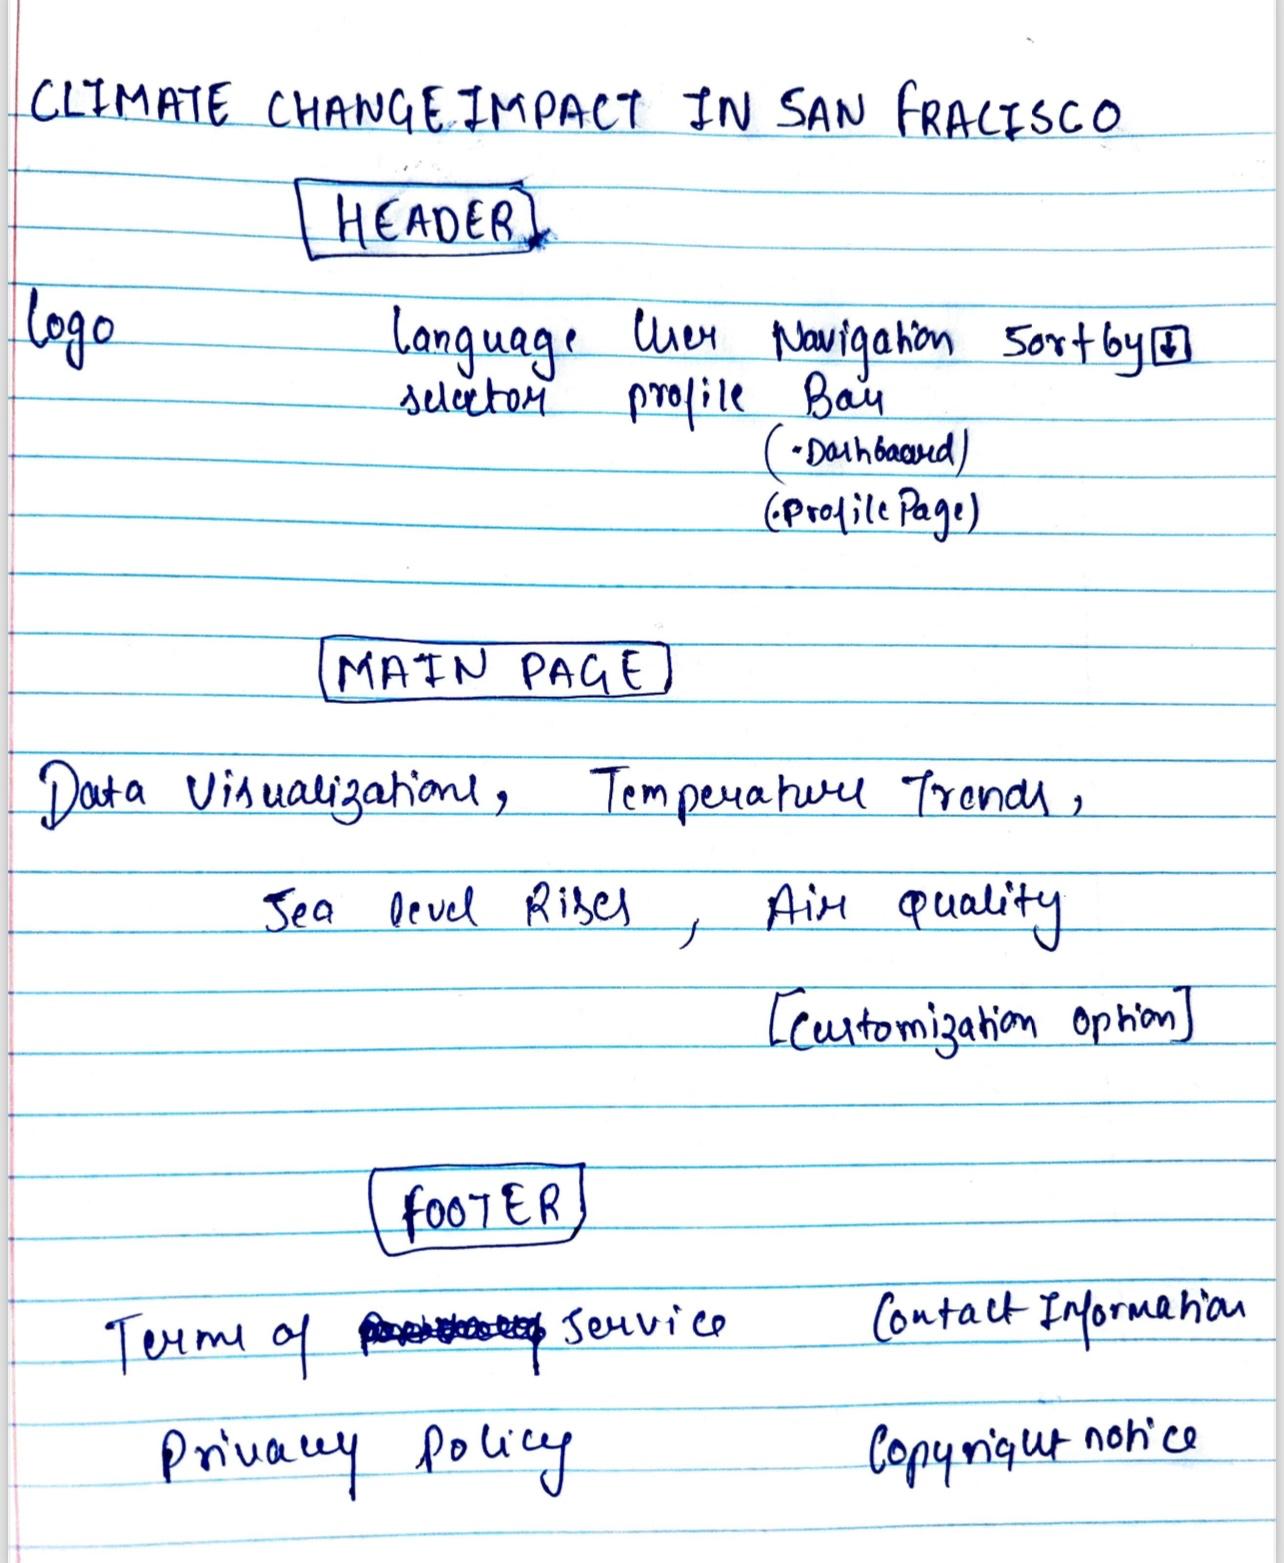 CLIMATE CHANGE IMPACT IN SAN FRACISCO
HEADER
Logo Language User Navigation Sort by
selector profile Bar
(• Dashboard)
(• Profile Page)
MAIN PAGE
Data Visualizations, Temperature Trends,
Sea level Rises , Air Quality
[Customization option]
FOOTER
Terms of service Contact Information
Privacy Policy Copyright notice